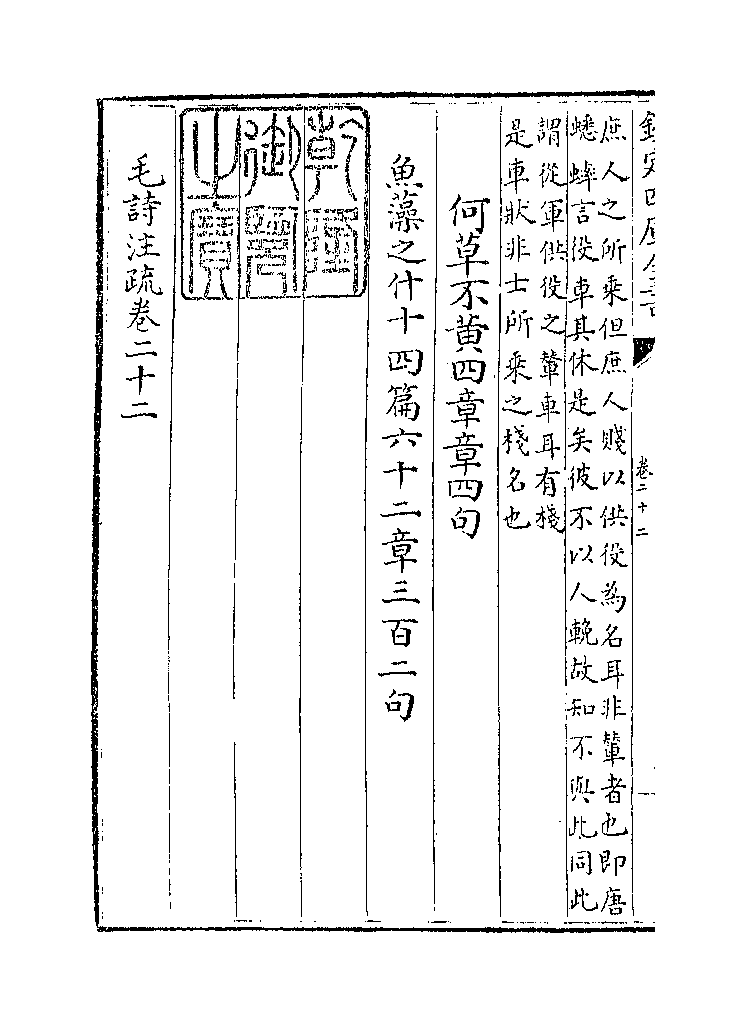 欽定四庫全書
卷二十二
庶人之所乗但庶人賤以供役為名耳非輦者也即唐
蟋蟀言役車其休是矣彼不以人輓故知不與此同此
謂從軍供役之輦車耳有棧
是車狀非士所乗之棧名也
何草不黄四章章四句
魚藻之什十四篇六十二章三百二句
乾隆御覽之寳
毛詩注疏卷二十二